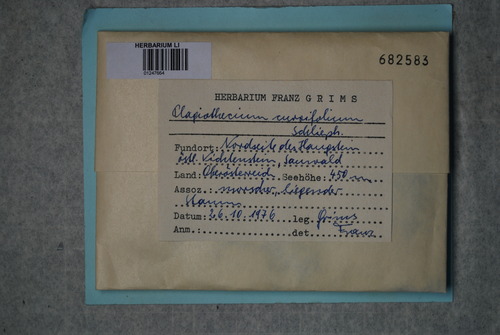 HERBARIUM LI
01247664
682583
HERBARIUM FRANZ GRIMS
Plagiothecium curvifolicum
Schlieph.
Fundort: Nordseite des Haugstein
östl. Sauwald
Land: Oberösterreich Seehöhe: 450 m
Assoz.: morscher, liegender
Stamm
Datum: 26.10.1976 leg. Grims
Anm.: det. Franz